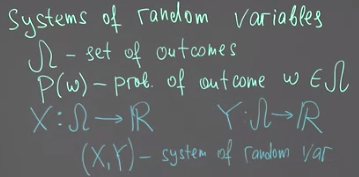 Systems of random variables
Ω - set of outcomes
P(w) - prob. of outcome w ∈ Ω
X: Ω → ℝ Y: Ω → ℝ
(X,Y) - system of random var